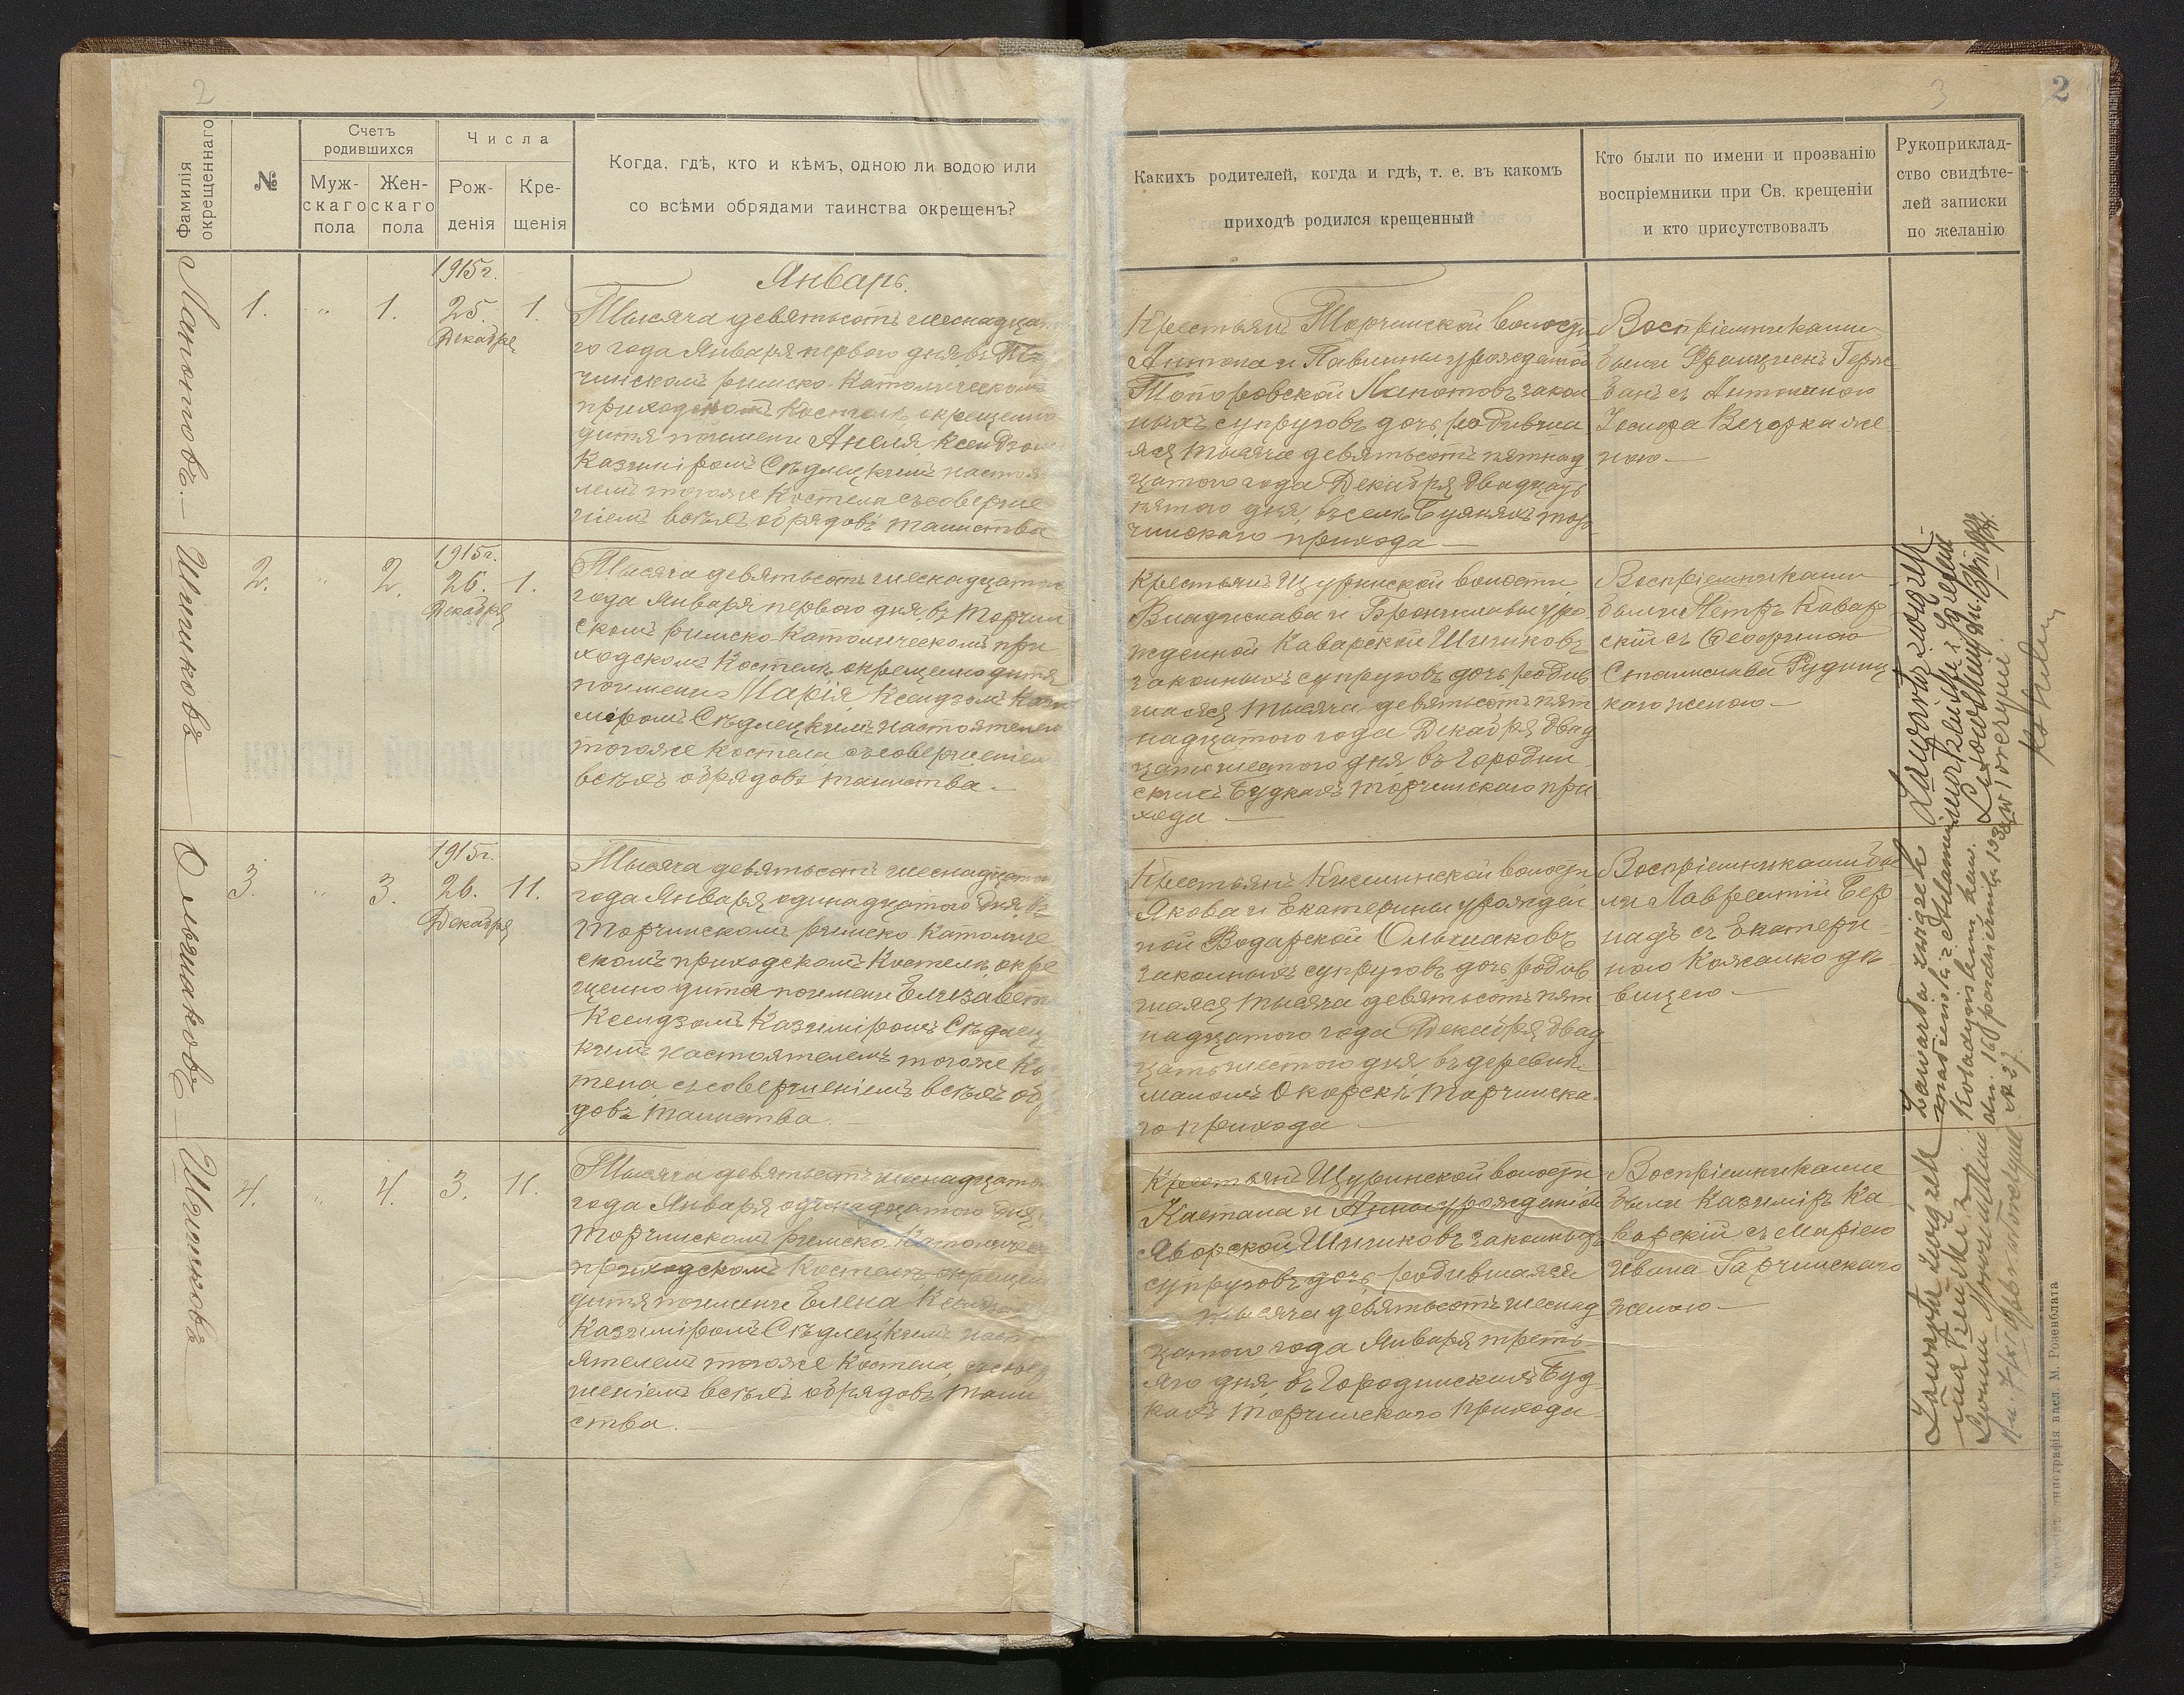 2
Фамилія окрещеннаго
№
Счетъ родившихся
Муж-
скаго
пола
Жен-
скаго
пола
Числа
Рож-
денія
Кре-
щенія
Когда, гдѣ, кто и кѣмъ, одною ли водою или
со всѣми обрядами таинства окрещенъ?
Лапотовъ.
1.
"
1.
1915г.
25.
Декабря
1.
Январь.
Тысяча девятьсотъ шеснадцато
го года Января перваго дня въ Тор
чинскомъ римско-Католическомъ
приходскомъ Костелѣ окрещено
дитя по имени Анеля Ксендзом
Казиміромъ Сѣдлецкимъ настоя
лемъ тогоже Костела съ соверше
ніемъ всѣхъ обрядовъ таинства
Шишковъ
2.
"
2.
1915г.
26.
Декабря
1.
Тысяча девятьсотъ шеснадцатаго
года Января перваго дня, въ Торчин
скомъ римско-Католическомъ при
ходскомъ Костелѣ окрещено дитя
по имени Марія, Ксендзомъ Кази
міромъ Сѣдлецкимъ настоятелемъ
тогоже Костела съ совершеніем
всѣхъ обрядовъ таинства.
Ольшаковъ
3.
"
3.
1915г.
26.
Декабря
11.
Тысяча девятьсотъ шеснадцатаго
года Января одинадцатого дня, въ
Торчинскомъ римско Католиче
скомъ приходскомъ Костелѣ окре
щено дитя по имени Елизавет
Ксендзомъ Казиміромъ Сѣдлец
кимъ настоятелемъ тогоже Ко
тела, съ совершеніемъ всѣхъ об
довъ таинства.
Шишковъ
4.
"
4.
3.
11.
Тысяча девятьсотъ шеснадцато
года Января одинадцатого дня,
Торчинскомъ римско Католичес
приходскомъ Костелѣ окрещено
дитя по имени Елена Ксендзом
Казиміромъ Сѣдлецкимъ насто
ятелемъ тогоже Костела, съ совер
шеніемъ всѣхъ обрядовъ таин
ства.
3
2
Какихъ родителей, когда и гдѣ, т. е. въ какомъ
приходѣ родился крещенный
Кто были по имени и прозванію
воспріемники при Св. крещеніи
и кто присутствовалъ
Рукоприклад-
ство свидѣте-
лей записки
по желанію
Крестьянъ Торчинской волости
Антона и Павлины урожденной
Топоровской Лапотовъ закон
ныхъ супруговъ дочь, родивша
яся тысяча девятьсотъ пятнад
цатого года Декабря двадцать
пятого дня, въ селѣ Буянахъ тор
чинскаго прихода.
Воспріемниками
были Францискъ Герже
банъ съ Антониною
Іосифа Вечорка же
ною.
Крестьянъ Щуринской волости
Владислава и Брониславы уро
жденной Каварской Шишковъ
законныхъ супруговъ дочь родив
шаяся тысяча девятьсотъ пят
надцатого года Декабря двад
цать шестого дня въ Городин
скихъ Будкахъ Торчинскаго при
хода
Воспріемниками
были Петръ Кавар
скій съ Геофилою
Станислава Рудниц
каго женою
Крестьянъ Киселинской волости
Якова и Екатерины урожден
ной Водарской Ольшаковъ
законныхъ супруговъ дочь родив
шаяся тысяча девятьсотъ пят
надцатого года Декабря двад
цать шестого дня, въ деревни
маломъ Окорскѣ Торчинска
го прихода
Воспріемниками бы
ли Лаврентій Бер
надъ съ Екатери
ною Кожалко дѣ
вицею
Крестьянъ Щуринской волости
Каетана и Анны урожденной
Яворской Шишковъ законныхъ
супруговъ дочь, родившаяся
тысяча девятьсотъ шеснад
цатого года Января треть
яго дня, въ Городинскихъ Буд
кахъ Торчинскаго прихода
Воспріемниками
были Казиміръ Ка
варскій съ Маріею
Ивана Гарчинскаго
женою
Zawarła związek
małżeński z